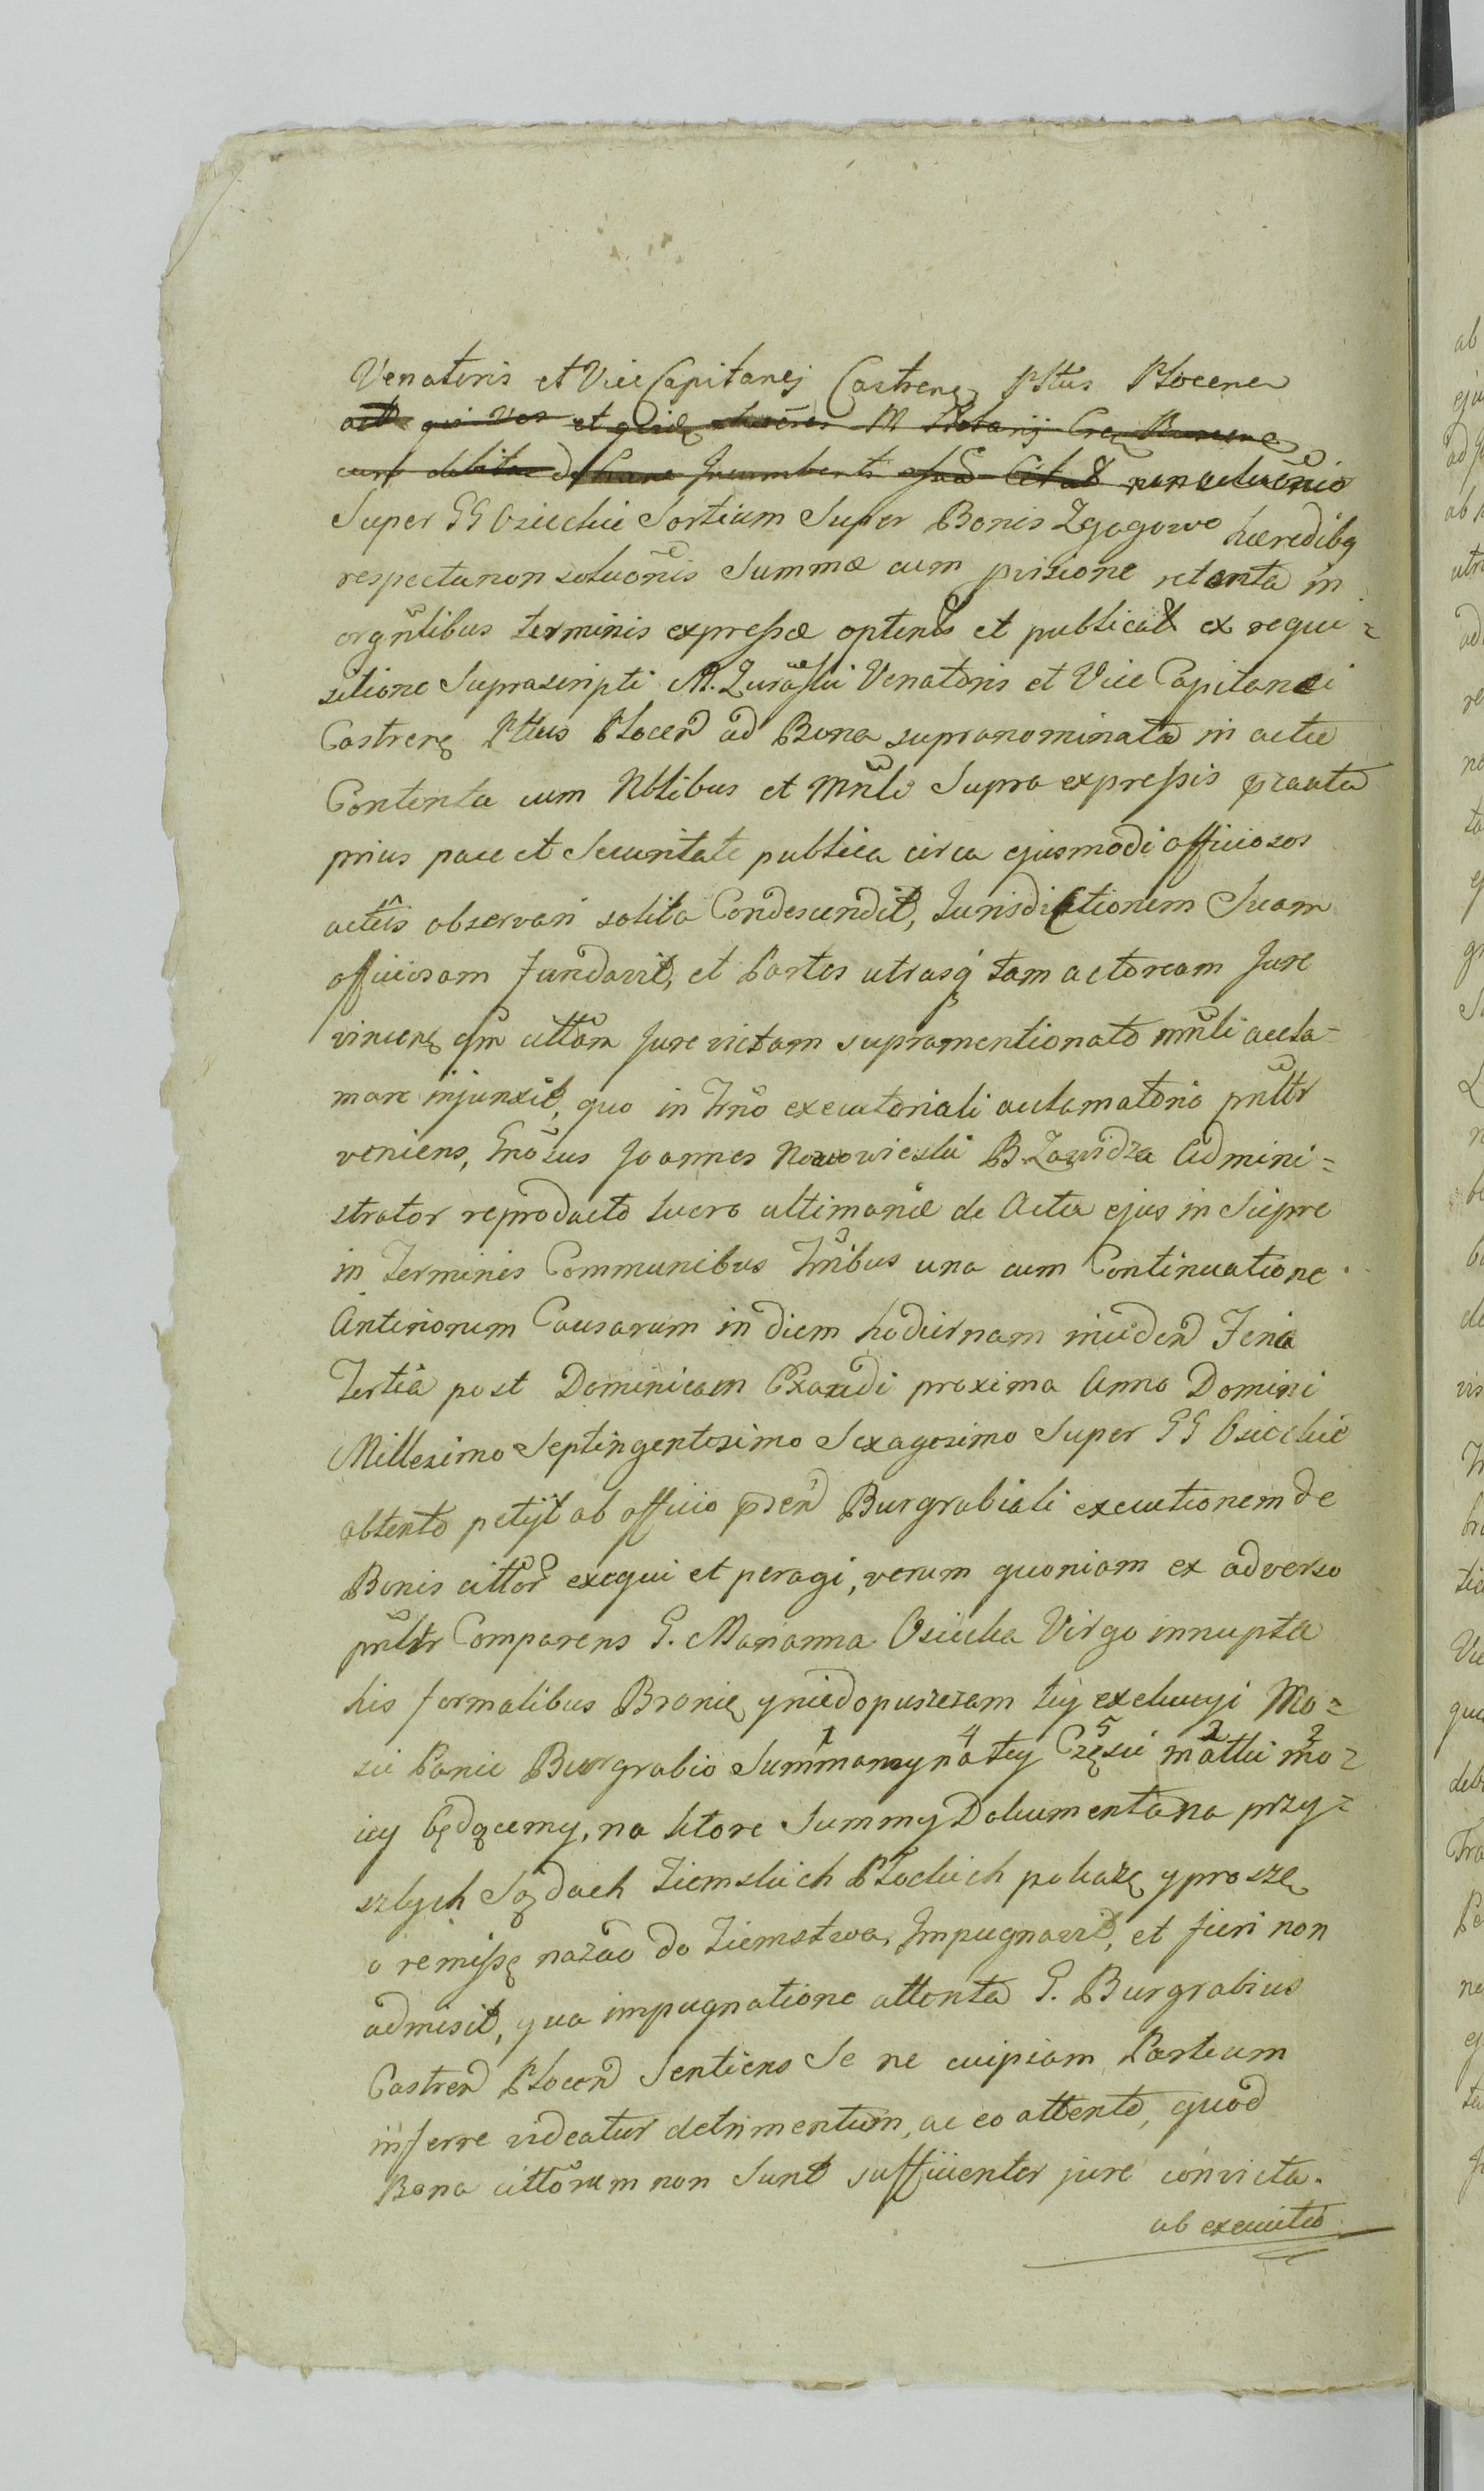 Venatoris et Vice Capitanej Castrenę Pttus Plocenę
et
cum debitae non solucõnis
Super GG Osieckie Sortium Super Bonis Zgagowo hæredibq
respectu non solucõnis Summæ cum provisione retenta in
orgñlibus terminis expressæ optentis et publicat ex requi=
sitione Suprascripti M. Zurawski Venatoris et Vice Capitanei
Castrenę Pttus Plocen ad Bona supranominata in actu
Contenta cum Nbilibus et Mñli Supra expressis præcauta
prius pace et Securitate publica circa ejusmodi officiosos
actûs observari solita Condescendit, Jurisdictionem Suam
officiosam fundavit, et Partes utrasq tam actoream Jure
vincenę qm cittam Jure victam supramentionato mñli accla=
mare injunxit, quo in Trño executoriali acclamatorio pñltr
veniens, Gñosus Joannes Nowowieski B. Zawidza Admini=
strator reproducto lucro ultimariæ de Acta ejus in Sierpc
in Terminis Communibus Trñibus una cum Continuatione
Anteriorum Causarum in diem hodiernam inciden Feria
Tertia post Dominicam Exaudi proxima Anno Domini
Millesimo Septingentesimo Sexagesimo Super GG Osieckie
obtento petijt ab officio præsen Burgrabiali executionem de
Bonis cittor exequi et peragi, verum quoniam ex adverso
pñltr Comparens G. Marianna Osiecka Virgo innupta
his formalibus Bronię y niedopuszczam tey exekucyi Mo=
sci Panie Burgrabio Summamy na tey Częsci matki mo=
1 4 5 2 3
iey będącemy, na ktore Summy Dokumenta na przy=
szłych Sądach Ziemskich Płockich pokażę y proszę
o remissę nazad do Ziemstwa, Impugnavit, et fieri non
admisit, qua impugnatione attenta G. Burgrabius
Castren Plocen Sentiens Se ne cuipiam Partium
inferre videatur detrimentum, ac eo attento, quod
Bona cittorum non Sunt sufficienter jure convicta.
ab executio